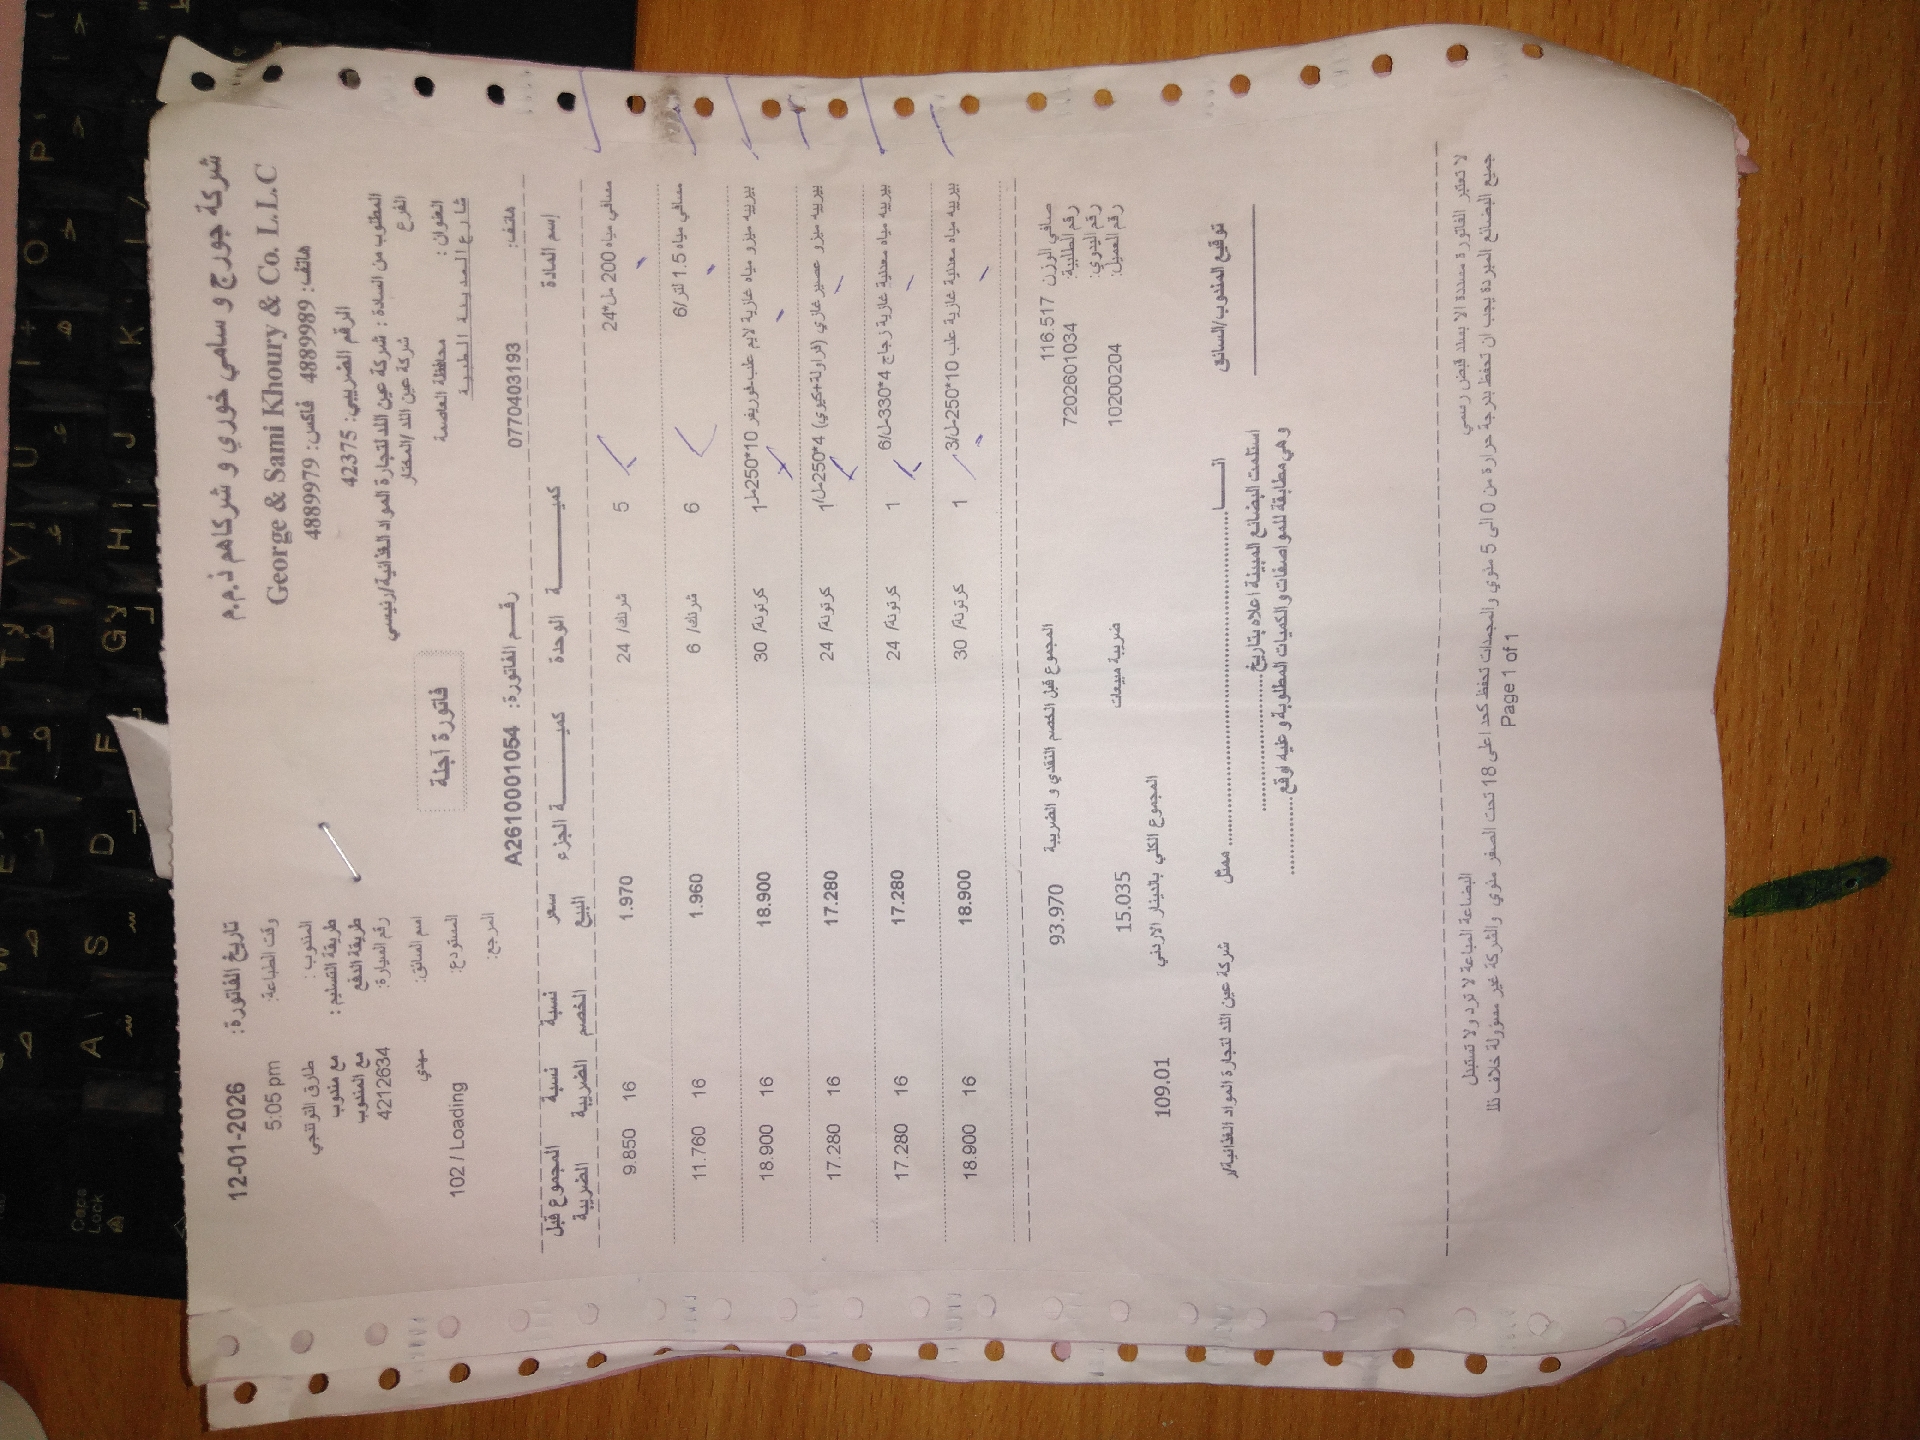 شركة جورج و سامي خوري و شركاهم ذ.م.م
George & Sami Khoury & Co. L.L.C
هاتف: 4889989 فاكس: 4889979
الرقم الضريبي: 42375
المطلوب من السادة : شركة عين اللد لتجارة المواد الغذائية/رئيسي
الفرع شركة عين اللد /المختار
العنوان : محافظة العاصمة
شارع المدينة الطبية
هاتف: 0770403193
تاريخ الفاتورة: 12-01-2026
وقت الطباعة: 5:05 pm
المندوب :
طريقة التسليم : مع مندوب
طريقة الدفع مع المندوب
رقم السيارة: 4212634
اسم السائق: مهدي
المستودع: 102 / Loading
المرجع:
فاتورة آجلة
رقم الفاتورة: A2610001054
إسم المادة كميـــة الوحدة كميـــة الجزء سعر البيع نسبة الخصم نسبة الضريبة المجموع قبل الضريبة
مسافي مياه 200 مل*24 5 شرنك/ 24 1.970 16 9.850
مسافي مياه 1.5 لتر/6 6 شرنك/ 6 1.960 16 11.760
بيرييه ميزو مياه غازية لايم علب 10*250مل 1 كرتونة/ 30 18.900 16 18.900
بيرييه ميزو عصير غازي (فراولة+كيوي) 4*250مل/ 1 كرتونة/ 24 17.280 16 17.280
بيرييه مياه معدنية غازية زجاج 4*330مل/6 1 كرتونة/ 24 17.280 16 17.280
بيرييه مياه معدنية غازية علب 10*250مل/3 1 كرتونة/ 30 18.900 16 18.900
صافي الوزن 116.517 المجموع قبل الخصم النقدي و الضريبة 93.970
رقم الطلبية: 7202601034
رقم اليدوي:
رقم العميل: 10200204 ضريبة مبيعات 15.035
المجموع الكلي بالدينار الاردني 109.01
توقيع المندوب/السائق
انـــا ممثل شركة عين اللد لتجارة المواد الغذائية/ر
استلمت البضائع المبينة اعلاه بتاريخ
وهي مطابقة للمواصفات والكميات المطلوبة و عليه اوقع
لا تعتبر الفاتورة مسددة الا بسند قبض رسمي البضاعة المباعة لا ترد ولا تستبدل
جميع البضائع المبردة يجب ان تحفظ بدرجة حرارة من 0 الى 5 مئوي والمجمدات تحفظ كحد اعلى 18 تحت الصفر مئوي والشركة غير مسؤولة خلاف ذلك
Page 1 of 1